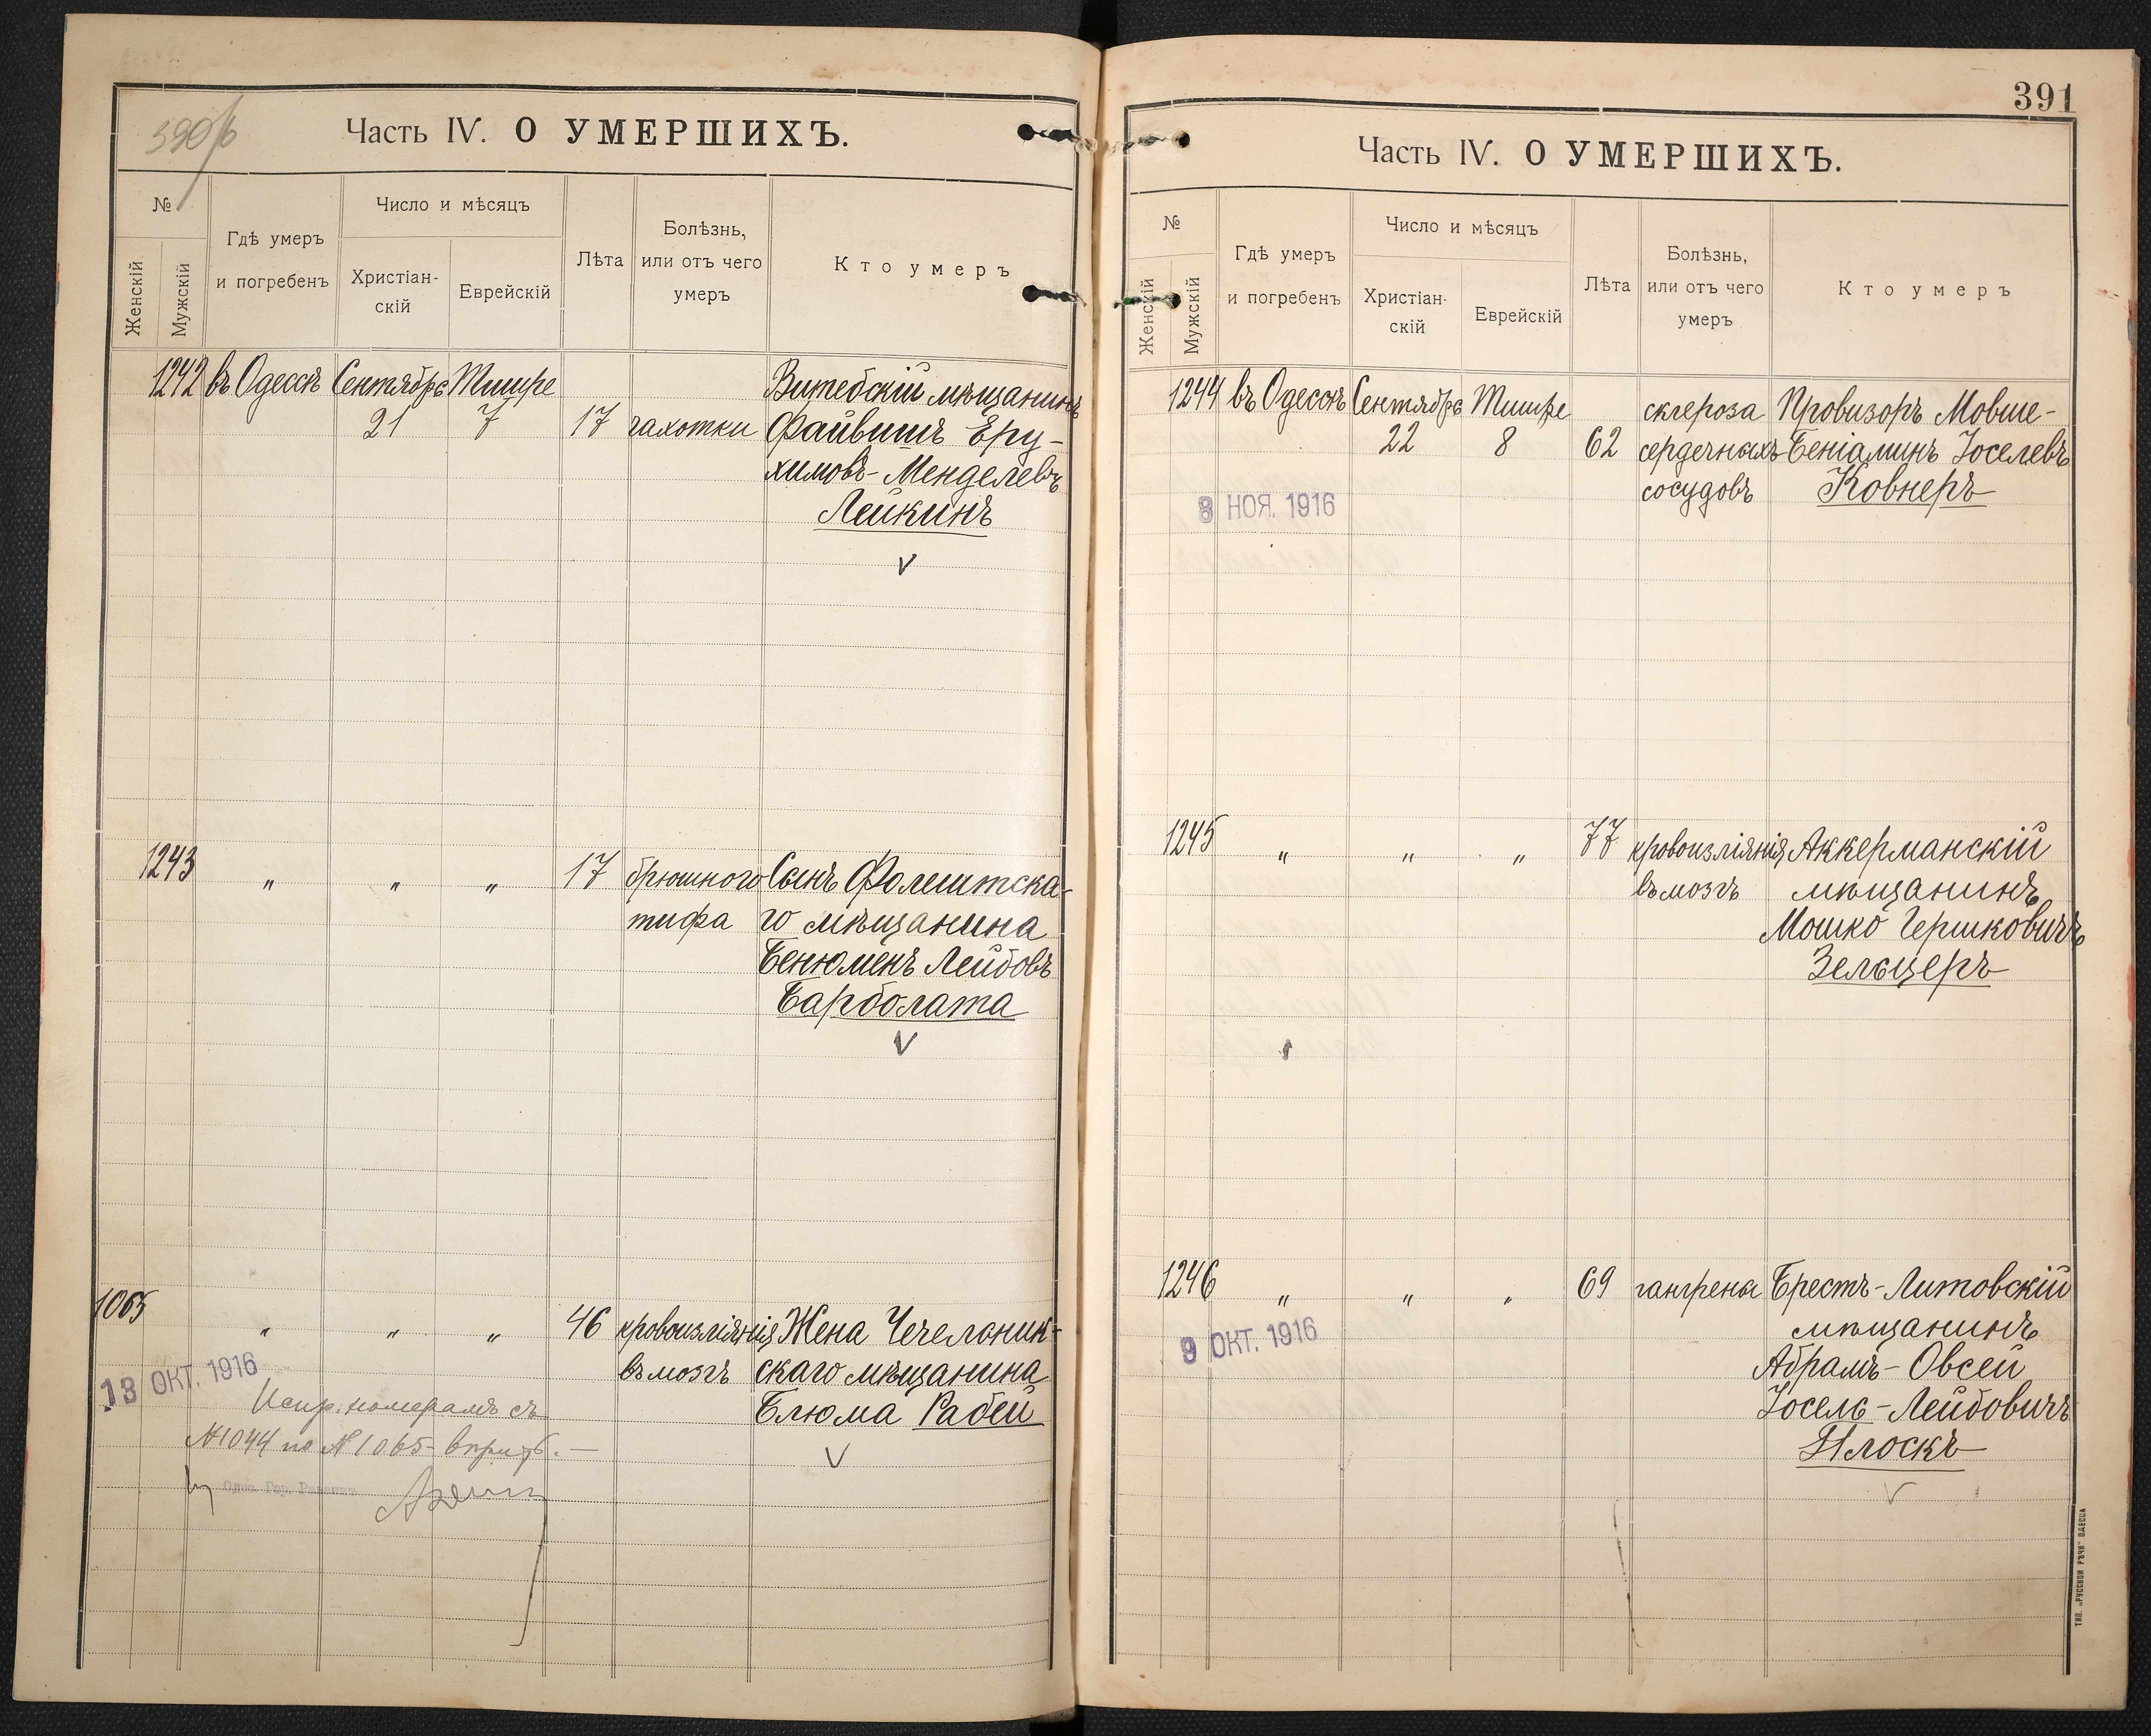 390/б
Часть IV. О УМЕРШИХЪ.
№
Женскій
Мужскій
Гдѣ умеръ
и погребенъ
Число и мѣсяцъ
Христіан-
скій
Еврейскій
Лѣта
Болѣзнь,
или отъ чего
умеръ
Кто умеръ
1242 въ Одессѣ Сентябрь Тишре Витебскій мѣщанинъ
21 7 17 чахотки Файвишъ Еру-
химовъ-Менделевъ
Лейкинъ
1243 " " " 17 брюшного Сынъ Фолештска-
тифа го мѣщанина
Бенюменъ Лейбовъ
Барболата
1065 " " " 46 кровоизліянія Жена Чечельник-
въ мозгъ скаго мѣщанина
Блюма Рабей
13 ОКТ. 1916
Испр. номерамъ съ
№1044 по №1065-
Одес. Гор. Раввинъ
391
Часть IV. О УМЕРШИХЪ.
№
Женскій
Мужскій
Гдѣ умеръ
и погребенъ
Число и мѣсяцъ
Христіан-
скій
Еврейскій
Лѣта
Болѣзнь,
или отъ чего
умеръ
Кто умеръ
1244 въ Одессѣ Сентябрь Тишре склероза Провизоръ Мовше-
22 8 62 сердечныхъ Беніаминъ Іоселевъ
сосудовъ Ковнеръ
8 НОЯ. 1916
1245 " " " 77 кровоизліянія Аккерманскій
въ мозгъ мѣщанинъ
Мошко Гершковичъ
Зельцеръ
1246 " " " 69 гангрены Брестъ-Литовскій
мѣщанинъ
9 ОКТ. 1916
Абрамъ-Овсей
Іосель-Лейбовичъ
Плоскъ
ТИП. „РУССКОЙ РѢЧИ" ОДЕССА